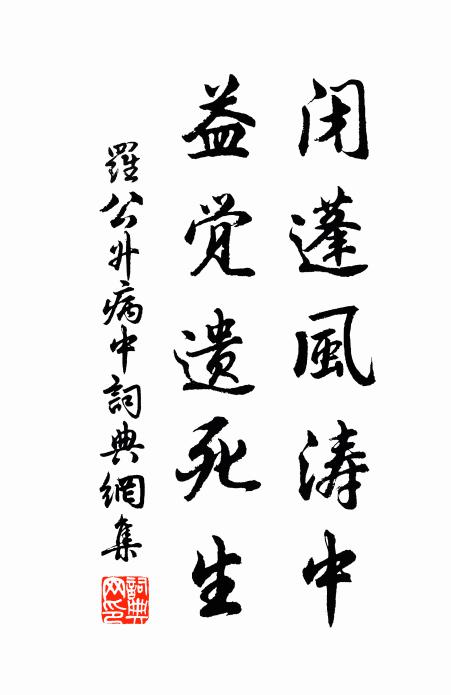 闭蓬風涛中
益觉遗死生
羅公升病中詞典網集
詞典网印